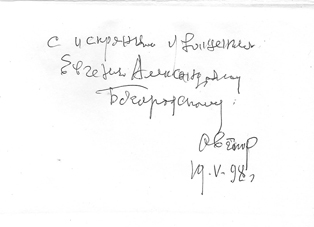 с искренним уважением
Евгению Александровичу
Богородскому
Автор
19.V-98г